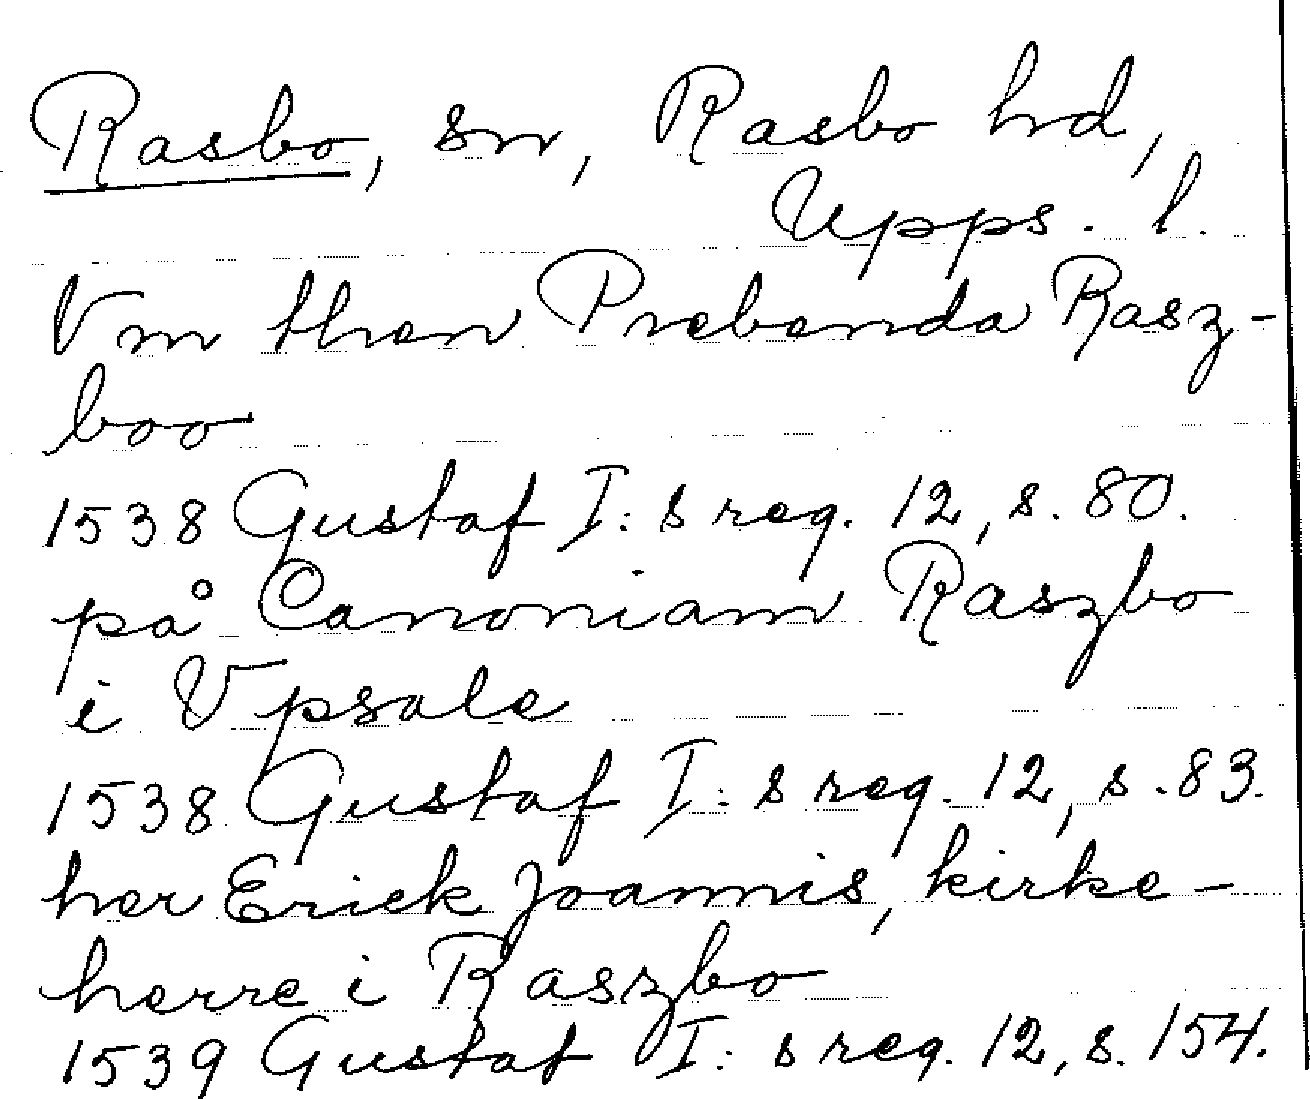 Rasbo, sn, Rasbo hd,
Upps. l.
Vm then Prebenda Rasz-
boo
1538 Gustaf I:s reg. 12, s. 80.
på Canoniam Raszbo
i Vpsale
1538 Gustaf I:s reg. 12, s. 83.
her Erick Joannis, kirke-
herre i Raszbo
1539 Gustaf I:s reg. 12, s. 154.